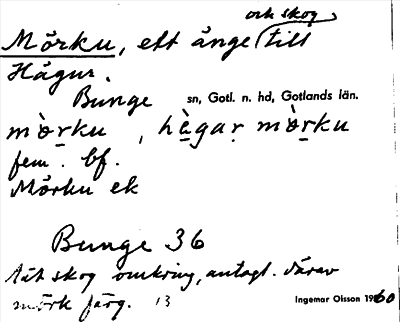 och skog
Mörku, ett änge till
Hägur.
Bunge sn, Gotl. n. hd, Gotlands län.
mò̱ṛku , hɛ̱̀gaṛ mò̱ṛku
fem. bf.
Mörku ek
Bunge 36
tät skog omkring, antagl. därav
mörk färg. 13
Ingemar Olsson 1960